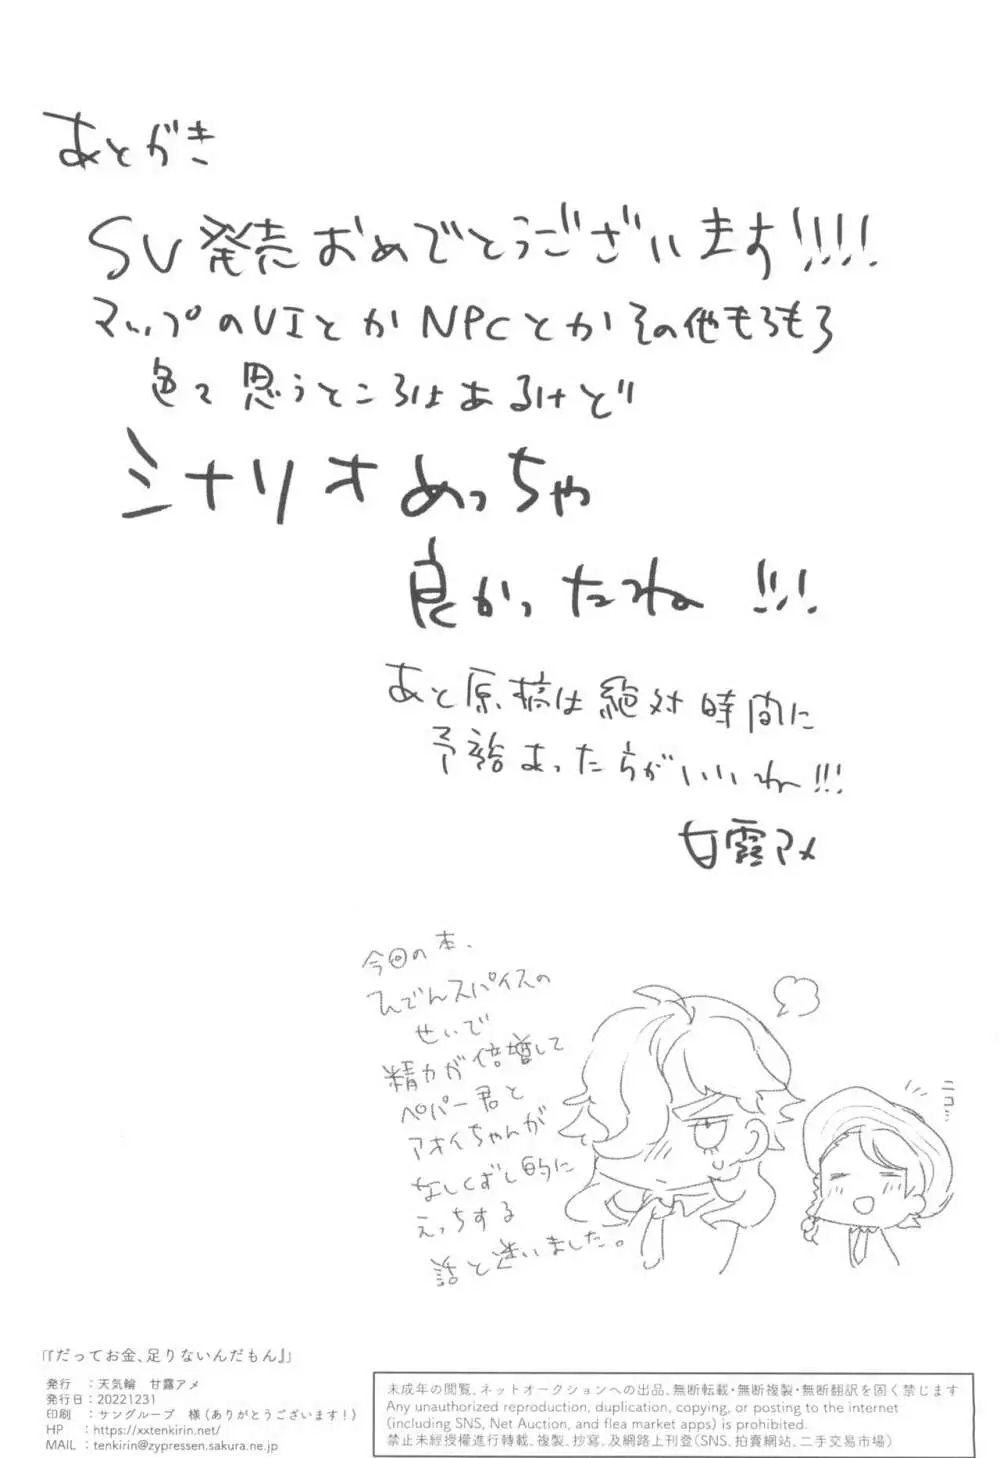 あとがき
SV発売おめでとうございます!!!!
マップのUIとかNPCとかその他もろもろ
色々思うところはあるけど
シナリオめっちゃ
良かったね!!!
あと原稿は絶対時間に
予裕あった方がいいね!!!
甘露アメ
今回の本、
ひでんスパイスの
せいで
精力が倍増して
ペパー君と
アオイちゃんが
なしくずし的に
えっちする
話と迷いました。
ニコ…
『「だってお金、足りないんだもん』」
発行 :天気輪 甘露アメ
発行日:20221231
印刷 :サングループ 様(ありがとうございます!)
HP :https://xxtenkirin.net/
MAIL :tenkirin@zypressen.sakura.ne.jp
未成年の閲覧、ネットオークションへの出品、無断転載・無断複製・無断翻訳を固く禁じます
Any unauthorized reproduction, duplication, copying, or posting to the internet
(including SNS, Net Auction, and flea market apps) is prohibited.
禁止未經授權進行轉載、複製、抄寫、及網路上刊登(SNS、拍賣網站、二手交易市場)